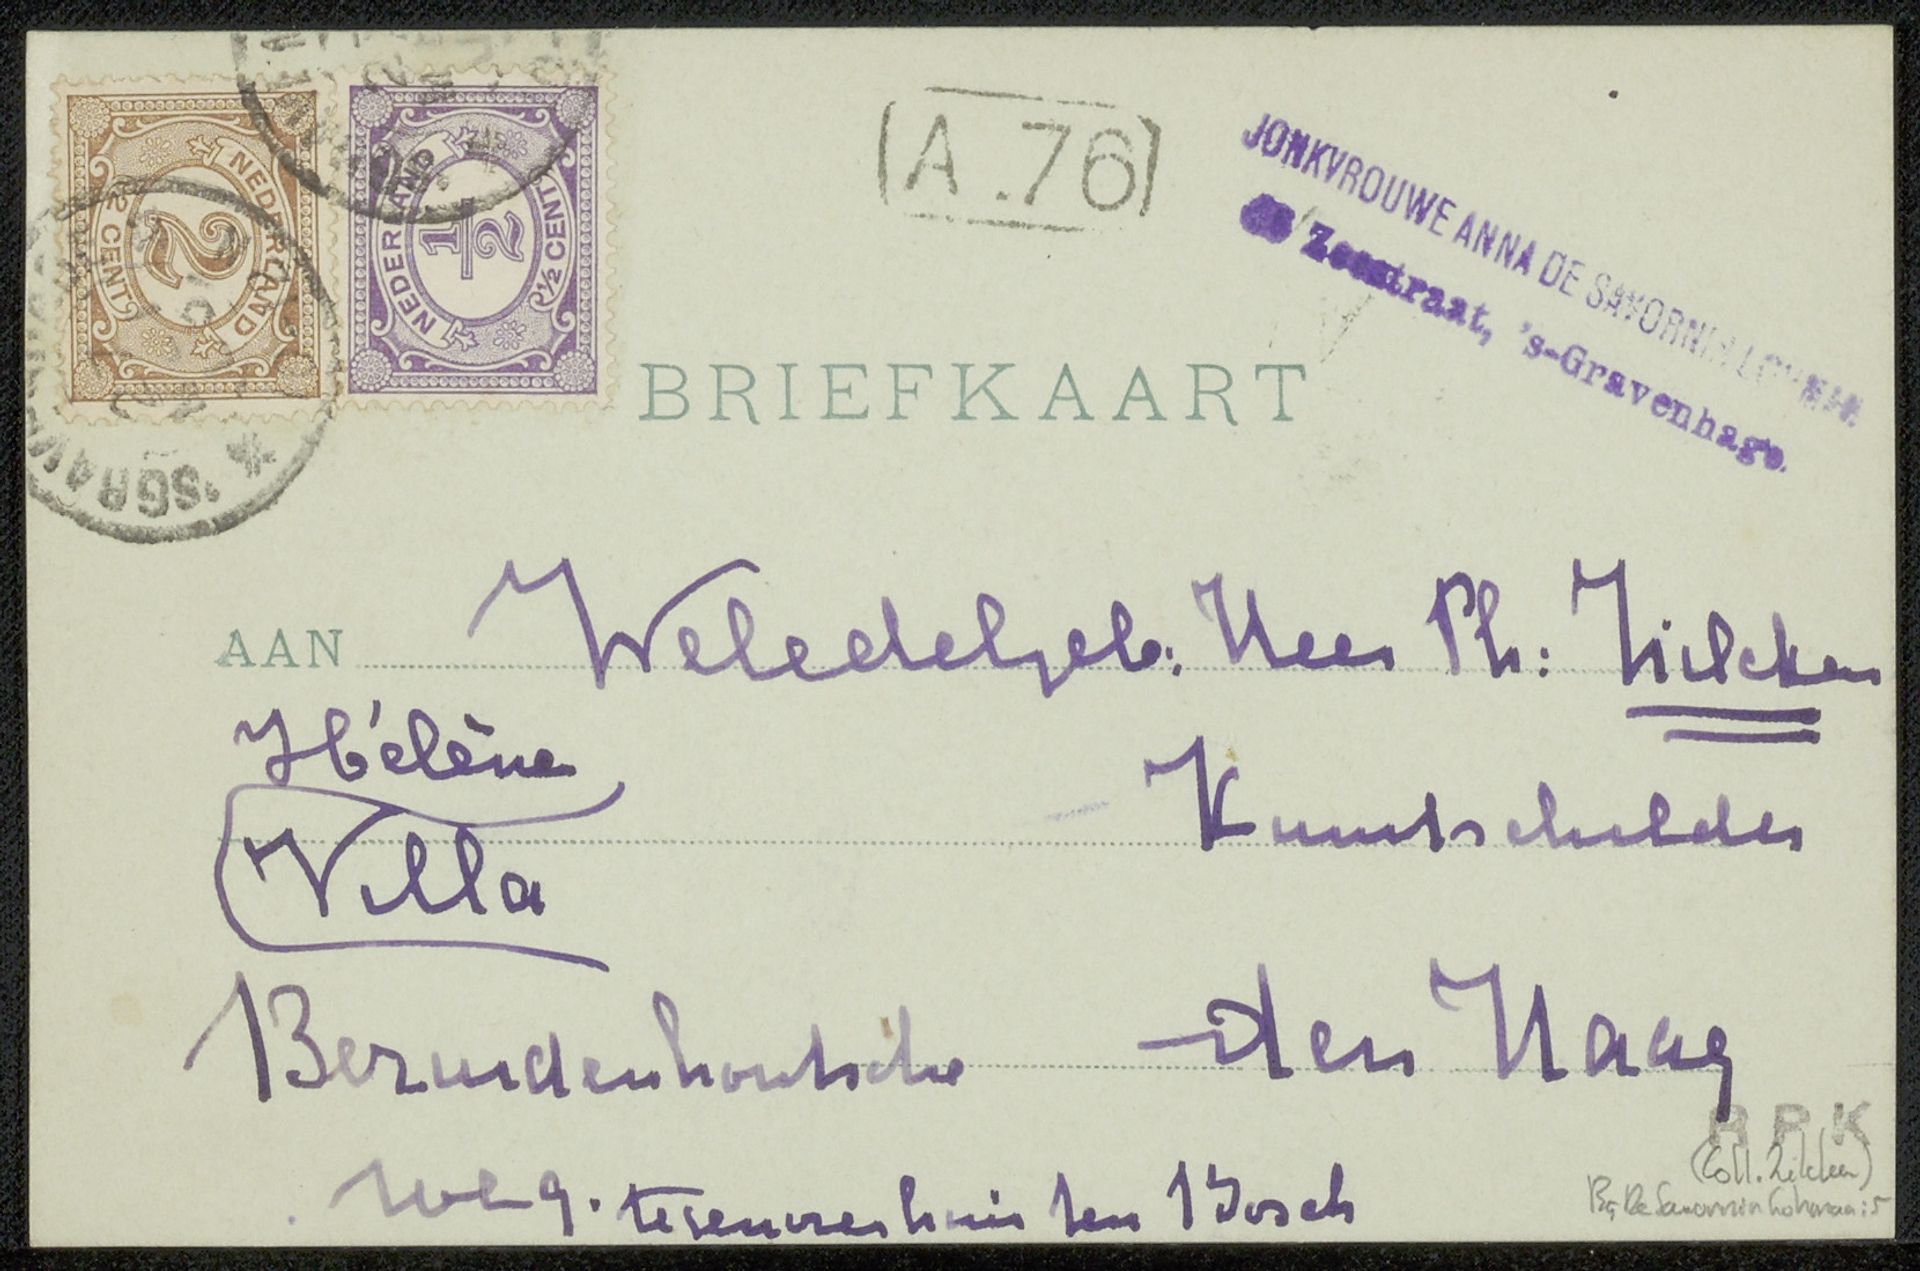 NEDERLAND
2
2 CENT
NEDERLAND
1/2
1/2 CENT
'SGRAV
(A.76)
JONKVROUWE ANNA DE SAVORNIN LOHMAN
Zeestraat, 's-Gravenhage.
BRIEFKAART
AAN Weledelgeb: Heer Ph: Zilcken
Hélène
Villa
Kunstschilder
Bezuidenhoutsche
den Haag
weg. tegenover huis ten Bosch
RPK
(Coll. Zilcken)
Br, De Savornin Lohman: 5